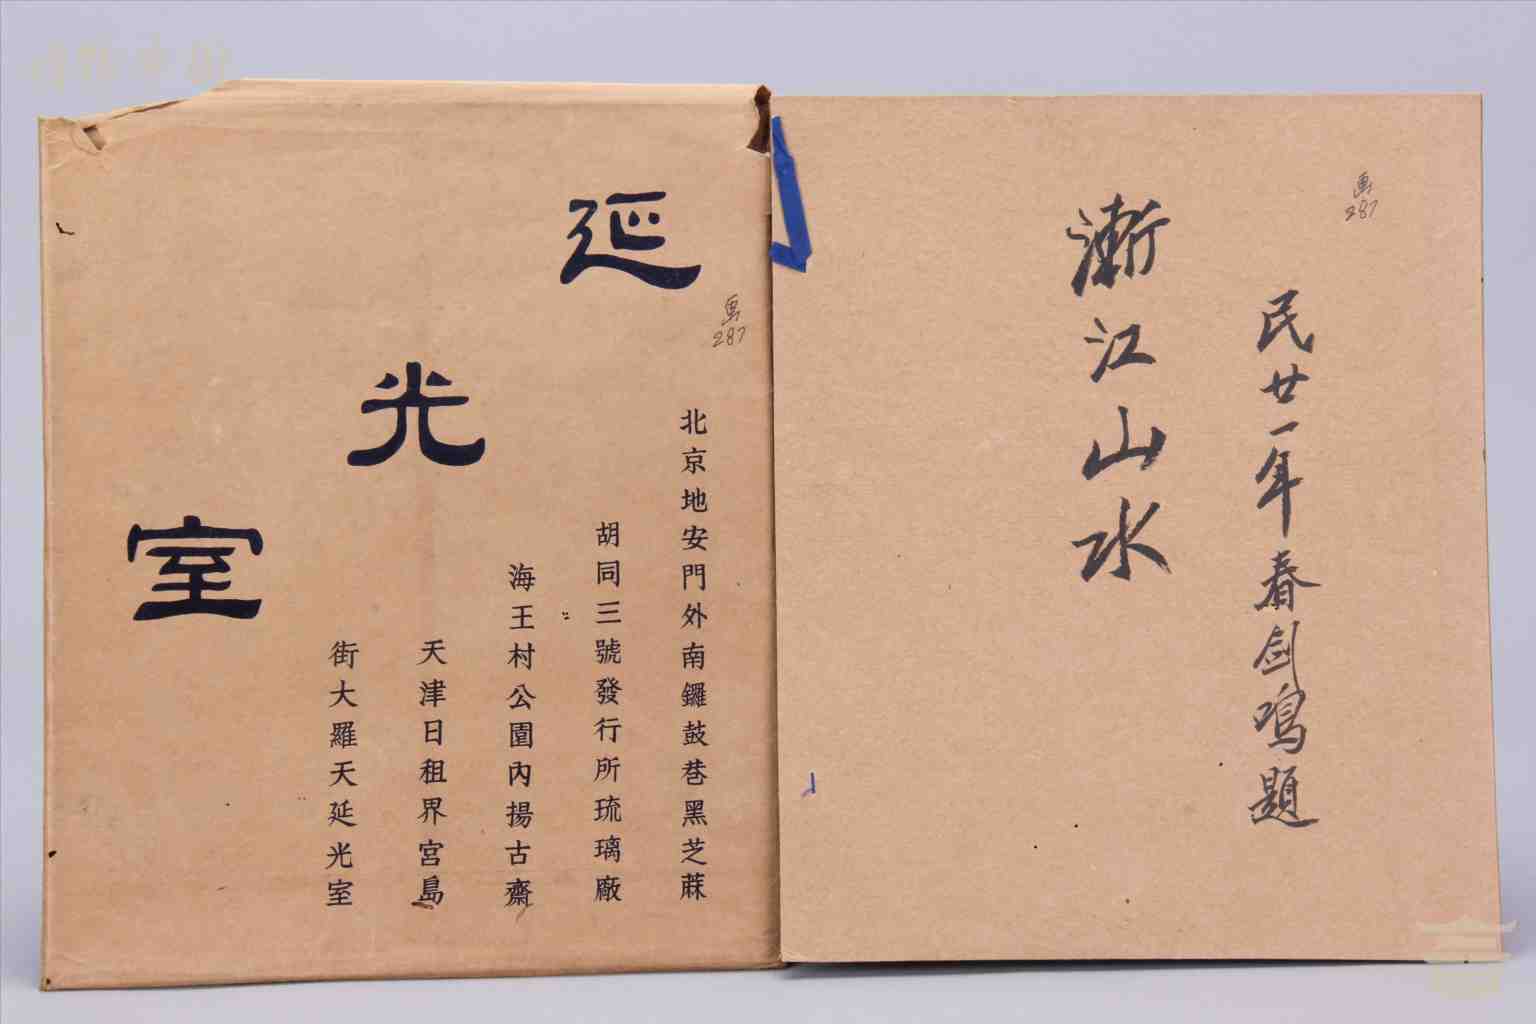 延光室
画
287
北京地安門外南鑼鼓巷黑芝蔴
胡同三號發行所琉璃廠
海王村公園內揚古齋
天津日租界宮島
街大羅天延光室
画
287
民廿一年春剑鸣題
漸江山水